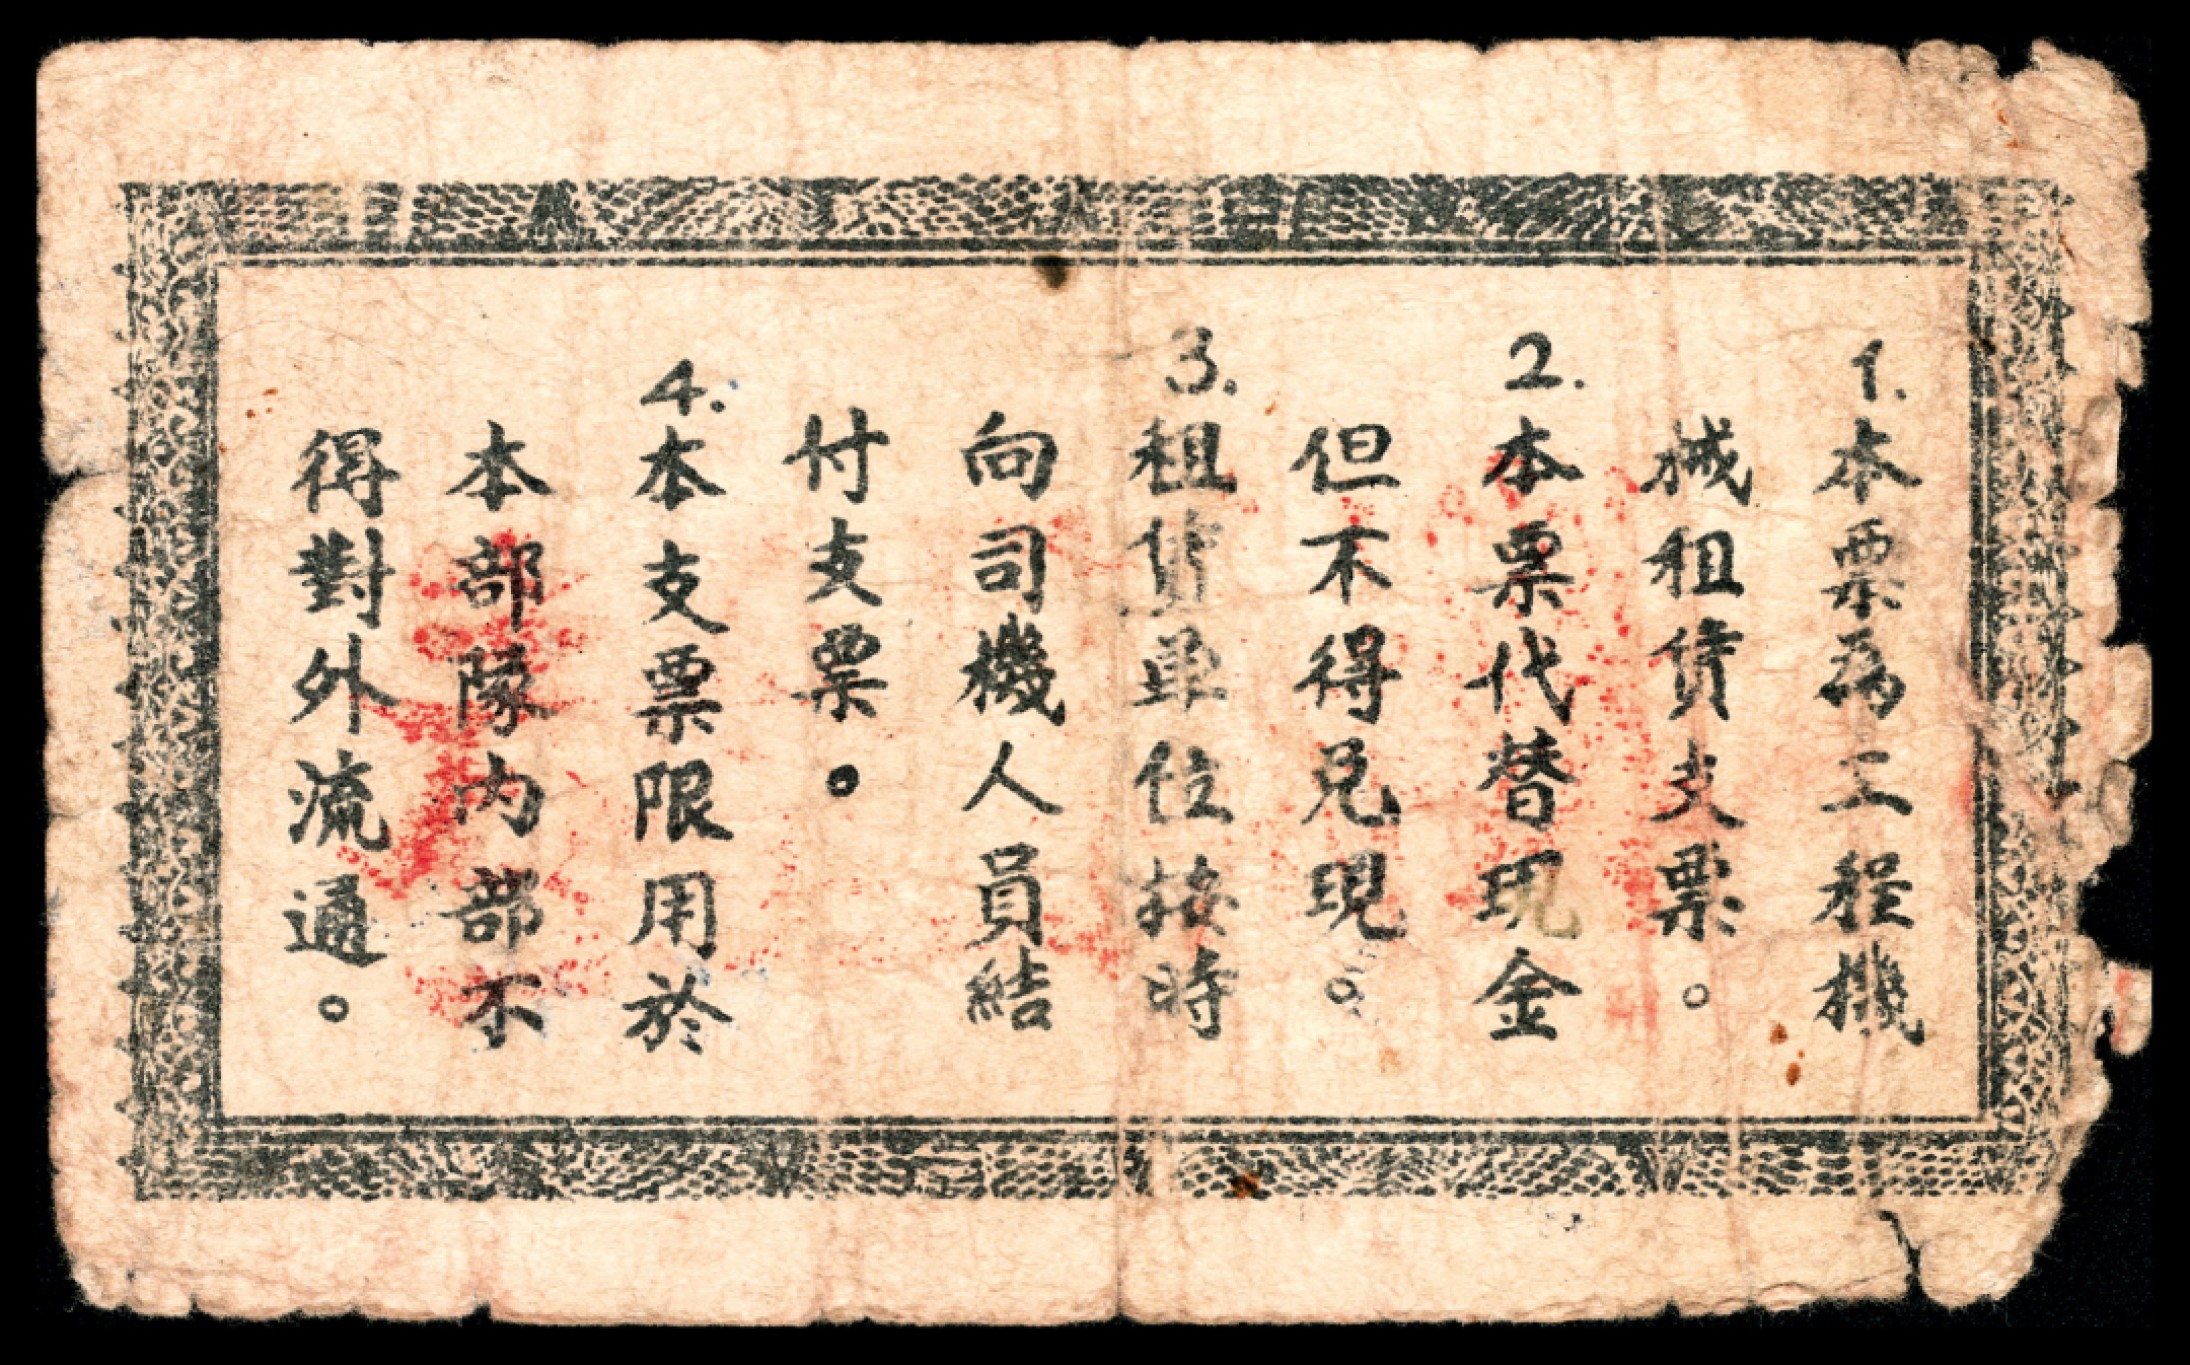 1.本票為工程機
械租賃支票。
2.本票代替现金
但不得兑現。
3.租賃单位按時
向司機人員結
付支票。
4.本支票限用於
本部隊內部不
得對外流通。